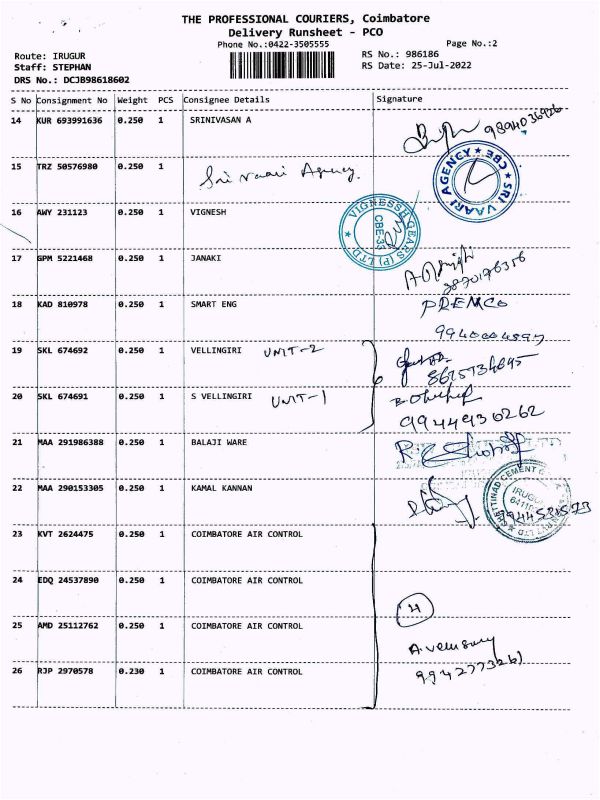 THE PROFESSIONAL COURIERS, Coimbatore
Delivery Runsheet - PCO
Phone No.:0422-3505555 Page No.:2
Route: IRUGUR RS No.: 986186
Staff: STEPHAN RS Date: 25-Jul-2022
DRS No.: DCJB98618602
S No Consignment No Weight PCS Consignee Details Signature
14 KUR 693991636 0.250 1 SRINIVASAN A 9894036926
15 TRZ 50576980 0.250 1 Sri Vaari Agency. SRI VAARI AGENCY CBE
16 AWY 231123 0.250 1 VIGNESH VIGNESSH GEARS (P) LTD CBE-35
17 GPM 5221468 0.250 1 JANAKI
18 KAD 810978 0.250 1 SMART ENG PREMCO
19 SKL 674692 0.250 1 VELLINGIRI UNIT-2
20 SKL 674691 0.250 1 S VELLINGIRI UNIT-1 9944930262
21 MAA 291986388 0.250 1 BALAJI WARE
22 MAA 290153305 0.250 1 KAMAL KANNAN CHETTINAD CEMENT IRUGUR
23 KVT 2624475 0.250 1 COIMBATORE AIR CONTROL
24 EDQ 24537890 0.250 1 COIMBATORE AIR CONTROL
25 AMD 25112762 0.250 1 COIMBATORE AIR CONTROL 4
26 RJP 2970578 0.230 1 COIMBATORE AIR CONTROL